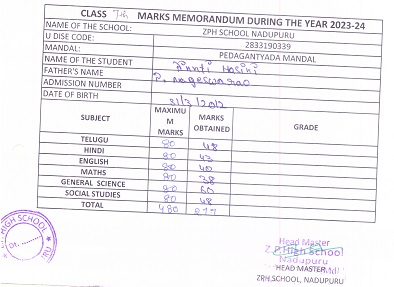 CLASS 7th MARKS MEMORANDUM DURING THE YEAR 2023-24
NAME OF THE SCHOOL: ZPH SCHOOL NADUPURU
U DISE CODE: 2833190339
MANDAL: PEDAGANTYADA MANDAL
NAME OF THE STUDENT Hasini
FATHER'S NAME P. Nageswarao
ADMISSION NUMBER
DATE OF BIRTH 31/3/2012
SUBJECT MAXIMUM MARKS MARKS OBTAINED GRADE
TELUGU 80 48
HINDI 80 43
ENGLISH 80 40
MATHS 80 38
GENERAL SCIENCE 80 60
SOCIAL STUDIES 80 48
TOTAL 480 277
HIGH SCHOOL
Dt.
Head Master
Z.P.High School
Nadupuru
HEAD MASTER
ZPH.SCHOOL, NADUPURU